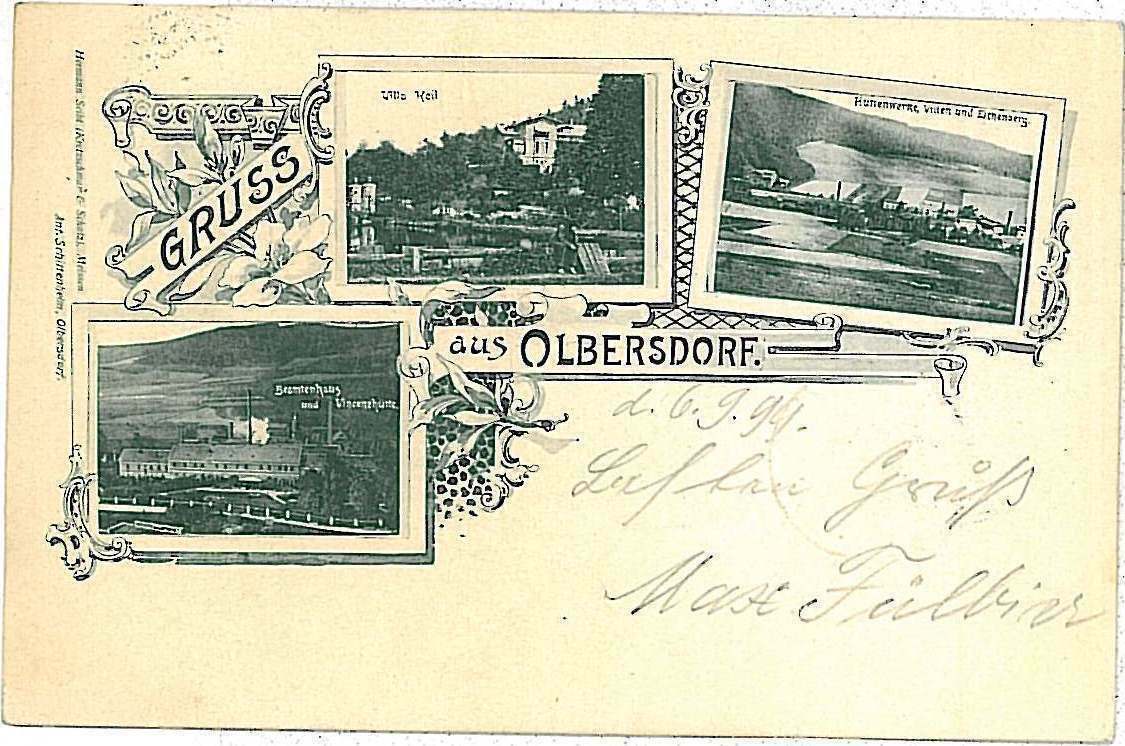 GRUSS
aus OLBERSDORF.
Villa Keil
Hüttenwerke, Villen und Eichenberg.
Beamtenhaus
und Vincenzhütte.
Ant. Schittenhelm, Olbersdorf.
d. 6. 9. 99.
Besten Gruß
Max Fülbier